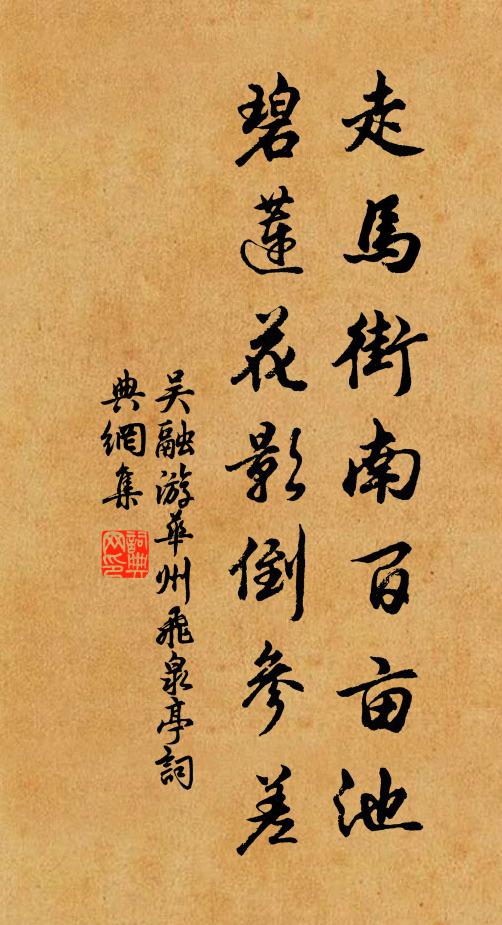 走馬街南百亩池
碧蓮花影倒參差
吴融游華州飛泉亭詞
典網集
詞典网印